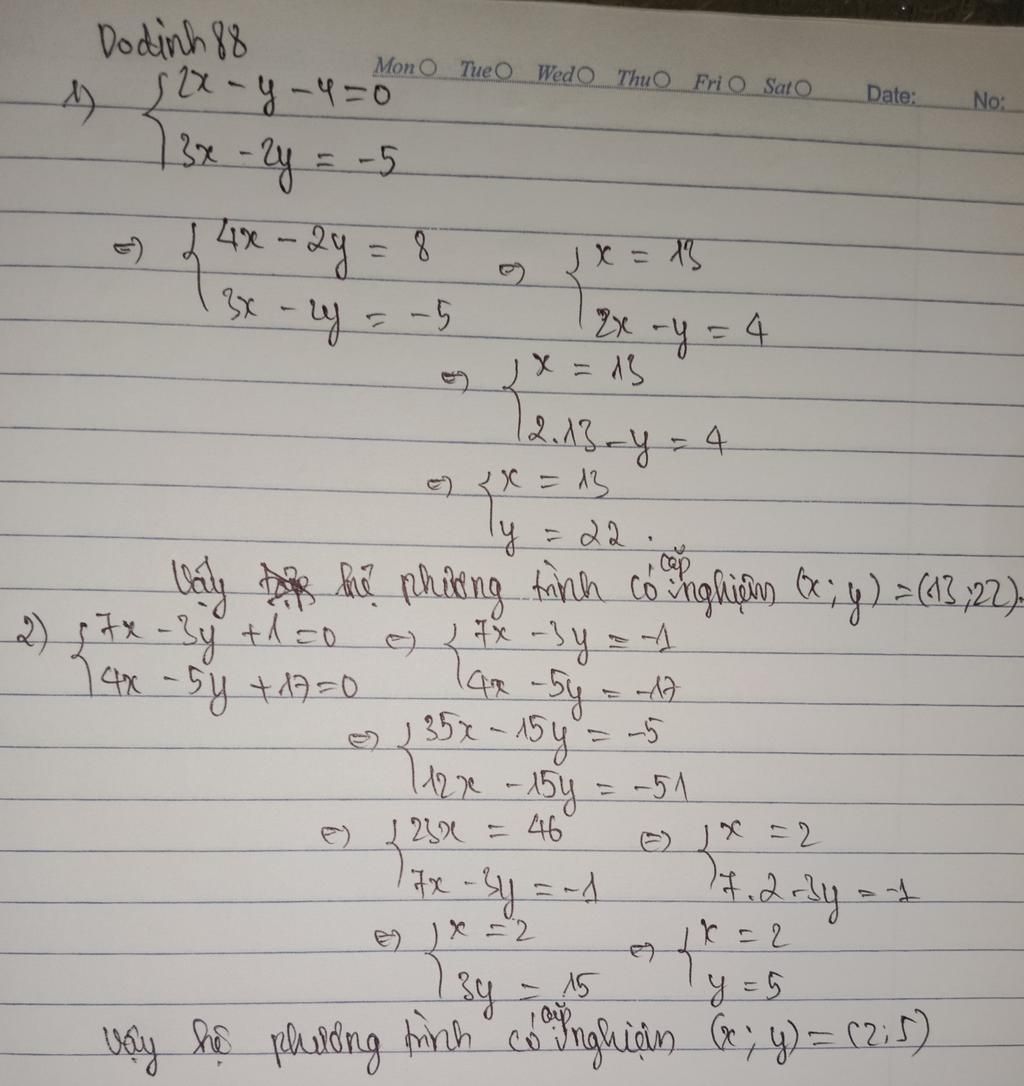 Dodinh88
Mon Tue Wed Thu Fri Sat Date: No:
1) { 2x - y - 4 = 0
3x - 2y = -5
⇔ { 4x - 2y = 8 ⇔ { x = 13
3x - 2y = -5 2x - y = 4
⇔ { x = 13
2.13 - y = 4
⇔ { x = 13
y = 22.
Vậy hệ phương trình có cặp nghiệm (x; y) = (13; 22).
2) { 7x - 3y + 1 = 0 ⇔ { 7x - 3y = -1
4x - 5y + 17 = 0 4x - 5y = -17
⇔ { 35x - 15y = -5
12x - 15y = -51
⇔ { 23x = 46 ⇔ { x = 2
7x - 3y = -1 7.2 - 3y = -1
⇔ { x = 2 ⇔ { x = 2
3y = 15 y = 5
Vậy hệ phương trình có cặp nghiệm (x; y) = (2; 5)